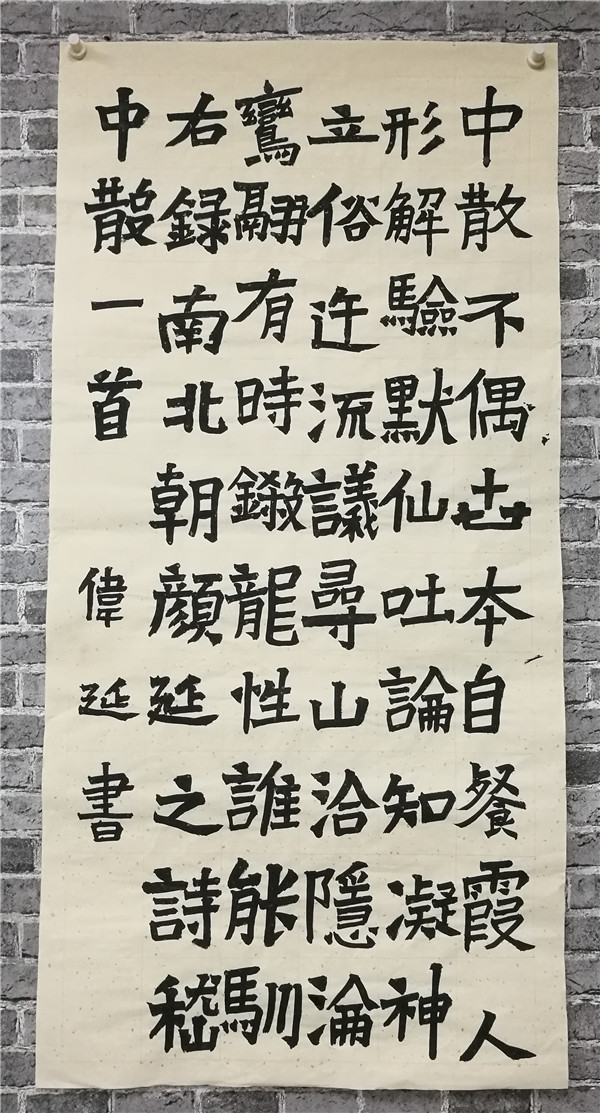 中散不偶世本自餐霞人
形解驗默仙吐論知凝神
立俗迕流議尋山洽隱淪
鸞翮有時鎩龍性誰能馴
右録南北朝顏延之詩嵇
中散一首 偉延書